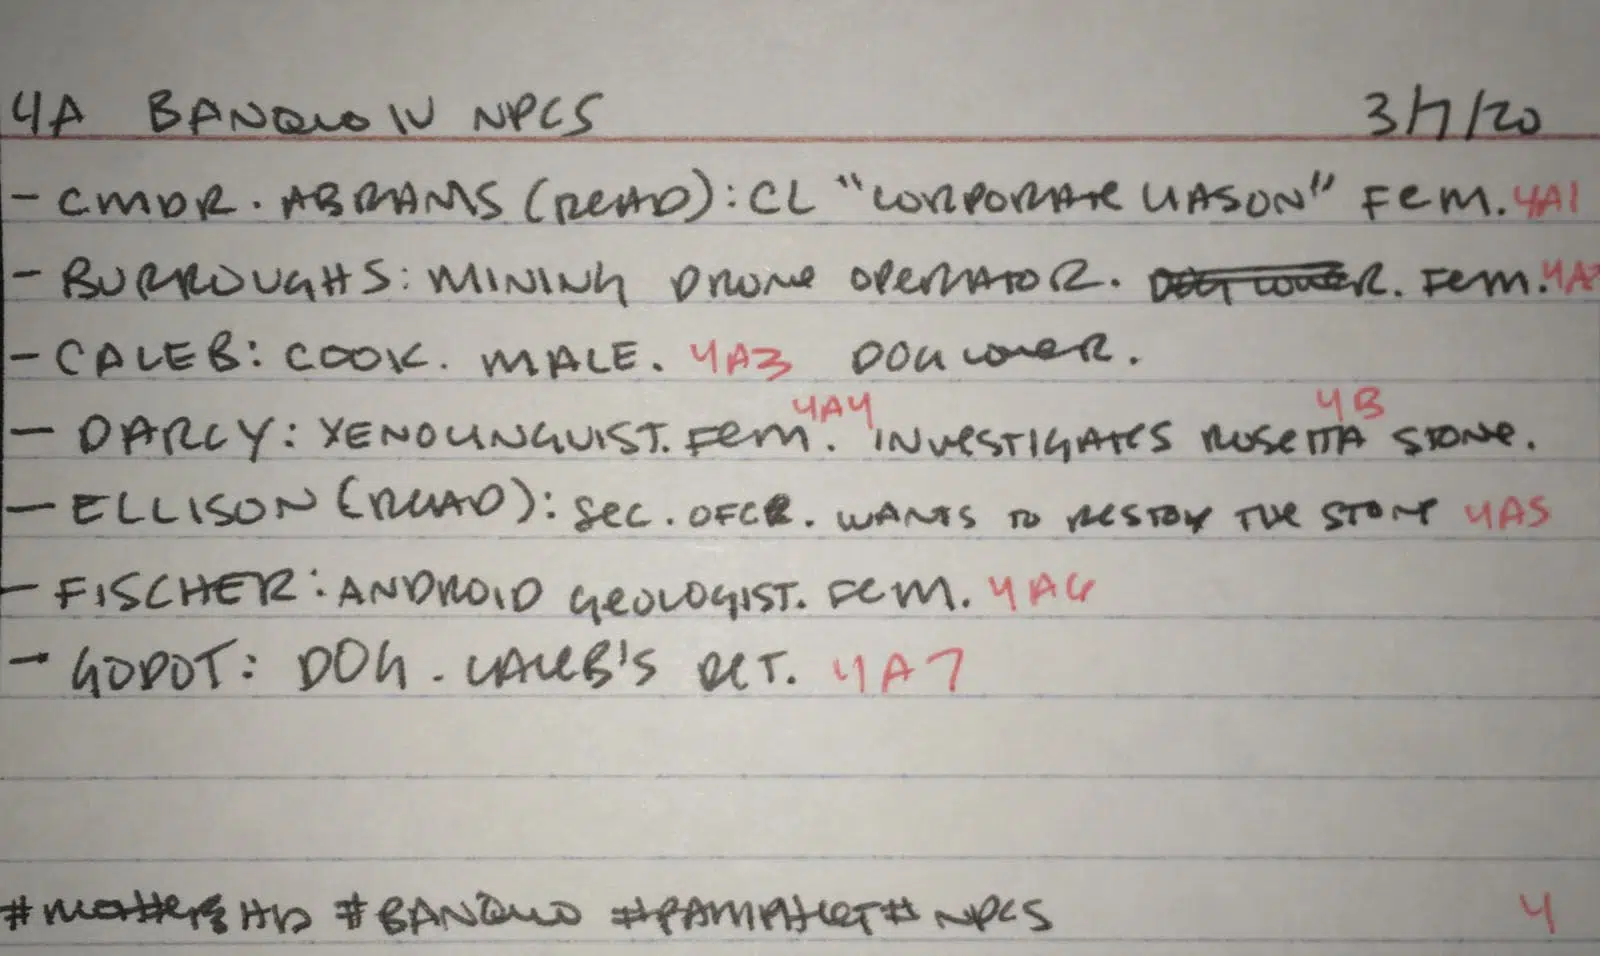 4A BANQUO IV NPCS 3/7/20
- CMDR. ABRAMS (READ): CL "CORPORATE LIASON" FEM. 4A1
- BURROUGHS: MINING DRONE OPERATOR. DOG LOVER. FEM. 4A2
- CALEB: COOK. MALE. 4A3 DOG LOVER.
- DARCY: XENOLINGUIST. FEM. 4A4 INVESTIGATES ROSETTA STONE. 4B
- ELLISON (READ): SEC. OFCR. WANTS TO DESTROY THE STONE 4A5
- FISCHER: ANDROID GEOLOGIST. FEM. 4A6
- GODOT: DOG. CALEB'S PET. 4A7
#MOTHERSHIP #BANQUO #PAMPHLET #NPCS 4